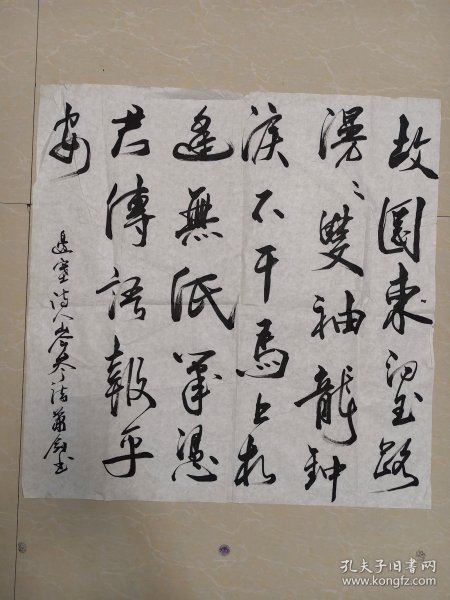 故園東望路
漫〻雙袖龍鍾
淚不干馬上相
逢無紙筆憑
君傳語報平
安
邊塞詩人岑參詩
孔夫子旧书网
www.kongfz.com